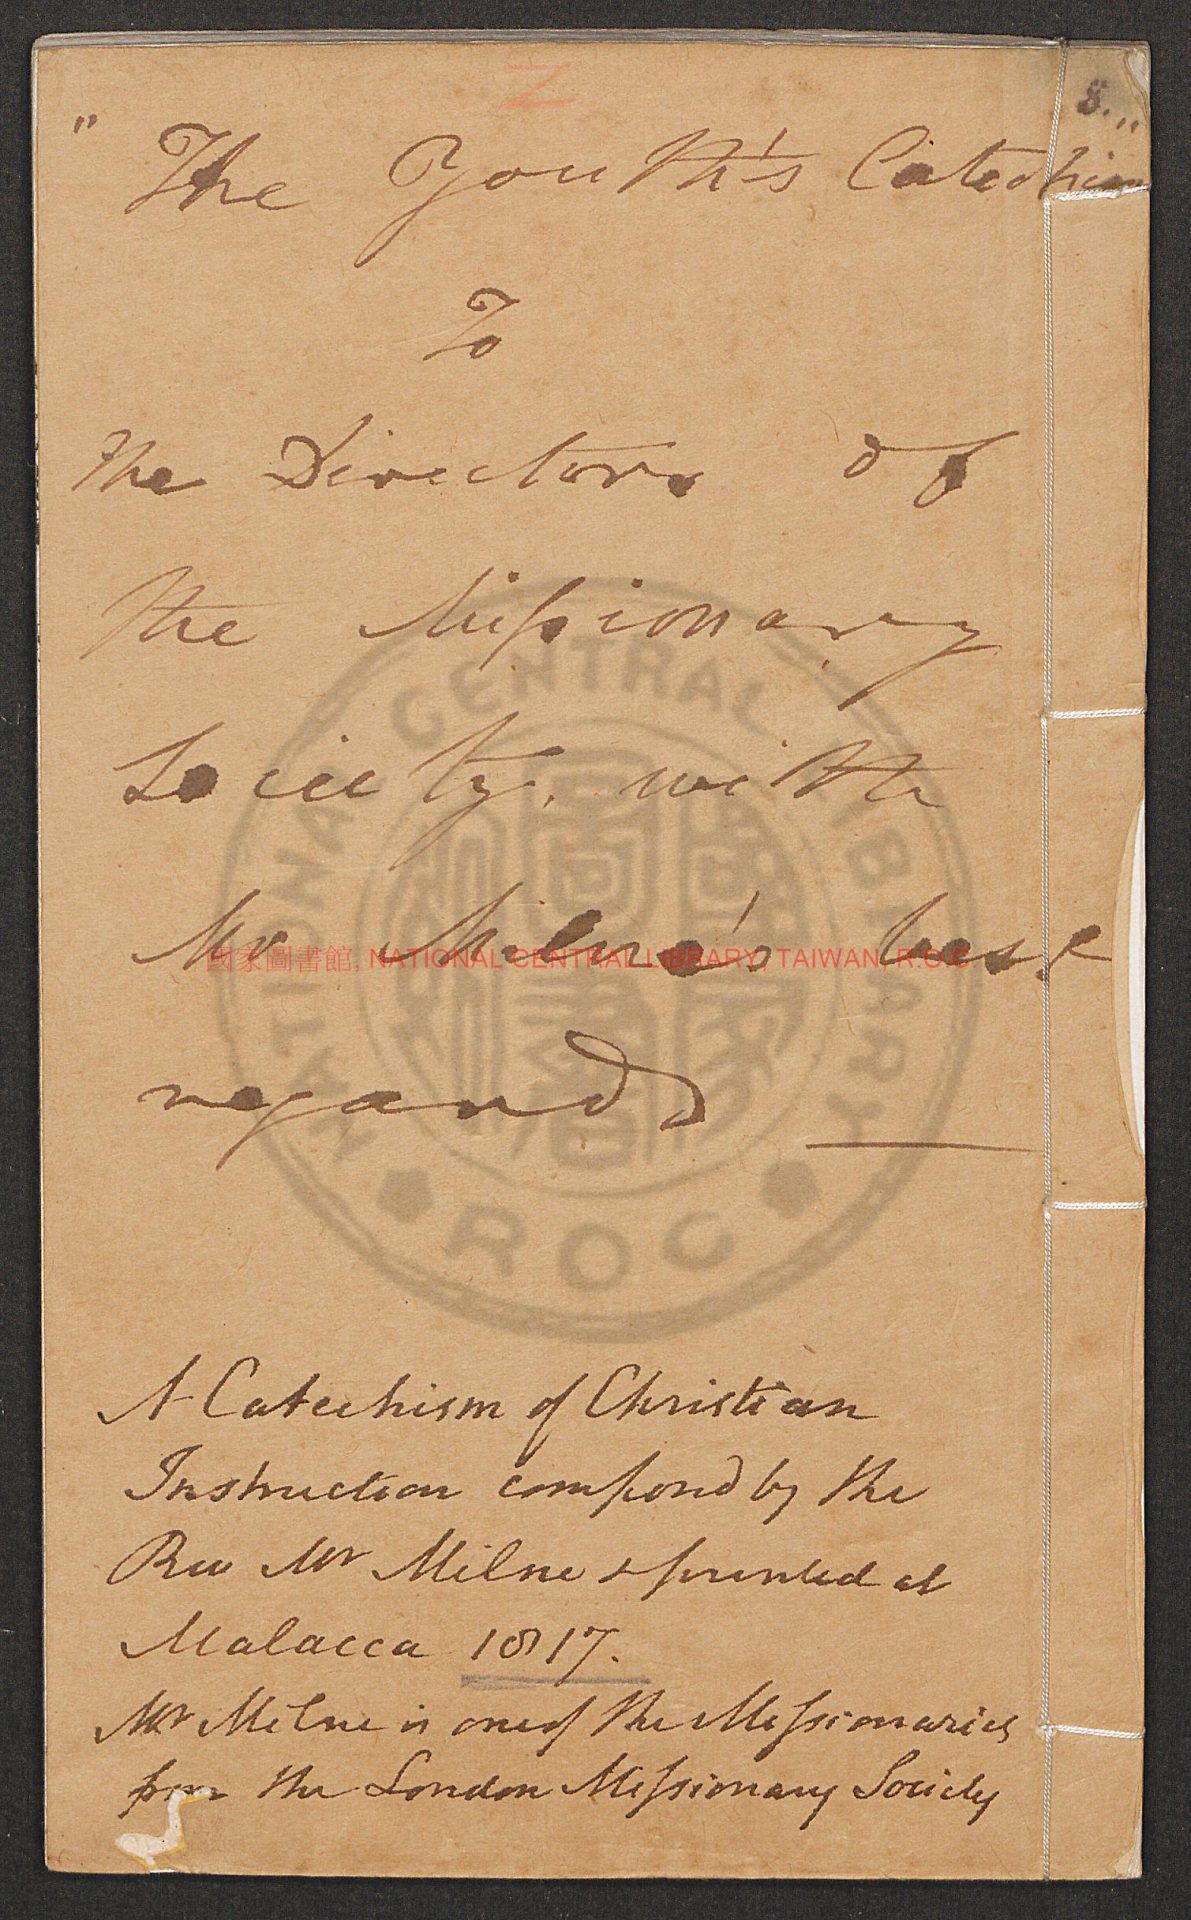 8..,,
" The Youth's Catechism
To
the Directors of
the Missionary
Society, with
Mr Milne's best
regards
A Catechism of Christian
Instruction composd by the
Rev Mr Milne & printed at
Malacca 1817.
Mr Milne is one of the Missionaries
from the London Missionary Society
國家圖書館, NATIONAL CENTRAL LIBRARY, TAIWAN, R.O.C.
NATIONAL CENTRAL LIBRARY
ROC